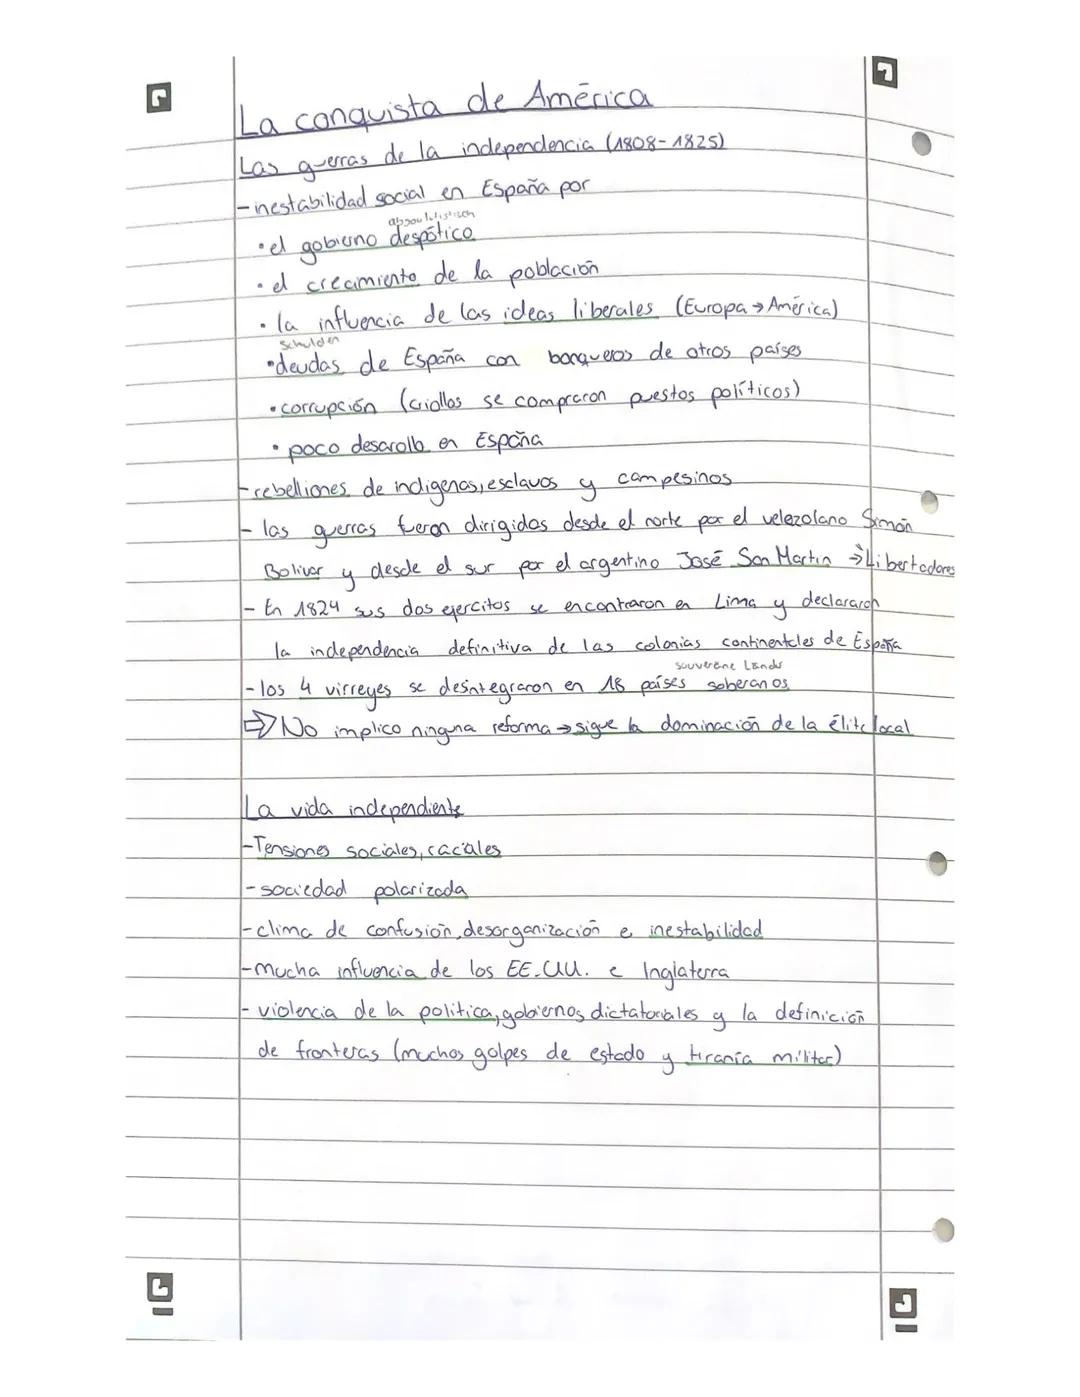 La conquista de América
Las guerras de la independencia (1808-1825)
- inestabilidad social en España por
absoulutistisch
• el gobierno despótico
• el crecimiento de la población
• la influencia de las ideas liberales (Europa → América)
Schulden
• deudas de España con banqueros de otros países
• corrupción (criollos se compraron puestos políticos)
• poco desarollo en España
- rebelliones de indigenas, esclavos y campesinos
- las guerras fueron dirigidas desde el norte por el velezolano Simón
Bolivar y desde el sur por el argentino José San Martin → Libertadores
- En 1824 sus dos ejercitos se encontraron en Lima y declararon
la independencia definitiva de las colonias continentales de España
souveräne Länder
- los 4 virreyes se desintegraron en 18 países soberanos
⇒ No implico ninguna reforma → sigue la dominación de la élite local
La vida independiente
- Tensiones sociales, raciales
- sociedad polarizada
- clima de confusión, desorganización e inestabilidad
- mucha influencia de los EE.UU. e Inglaterra
- violencia de la politica, gobiernos dictatoriales y la definición
de fronteras (muchos golpes de estado y tiranía militar)